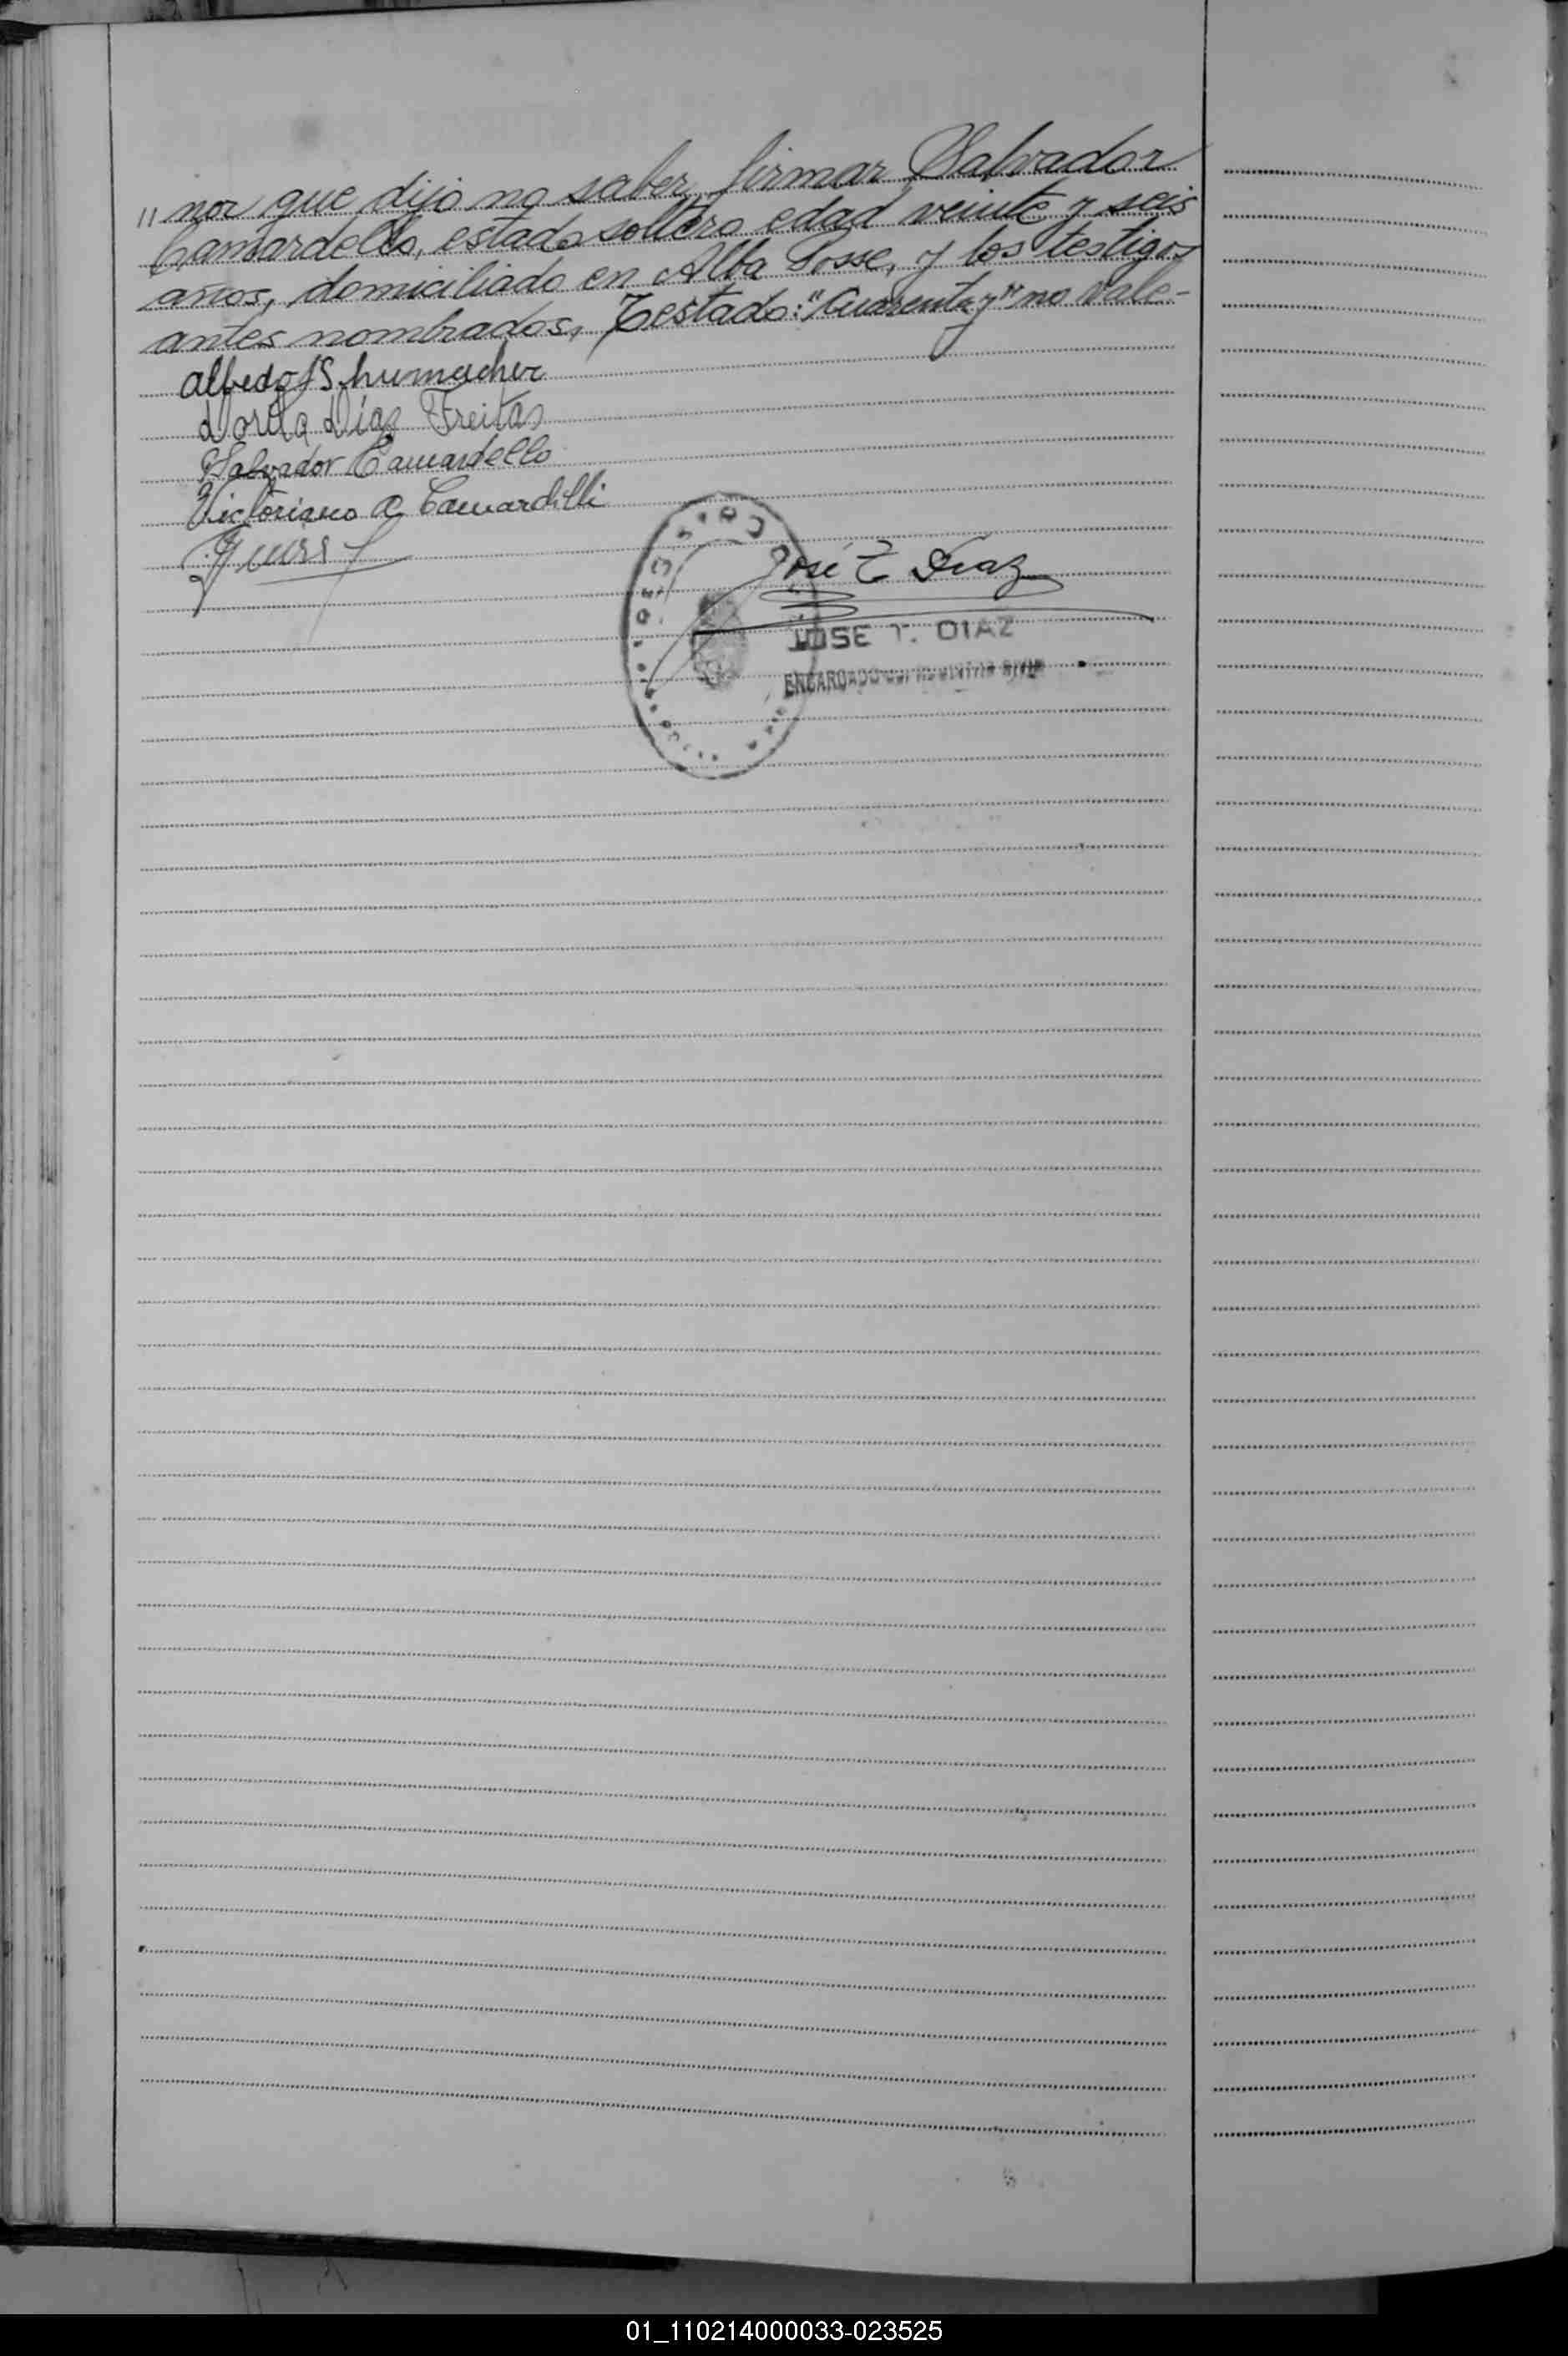 "nor que dijo no saber firmar Salvador
Camardello, estado soltero edad veinte y seis
años, domiciliado en Alba Posse, y los testigos
antes nombrados, Testado: "Cuarenta y" no vale-
Alfredo Shumacher
Dorila Diaz Freitas
Salvador Camardello
Victoriano A Camardelli
José T Diaz
JOSE T. DIAZ
ENCARGADO DEL REGISTRO CIVIL
01_110214000033-023525